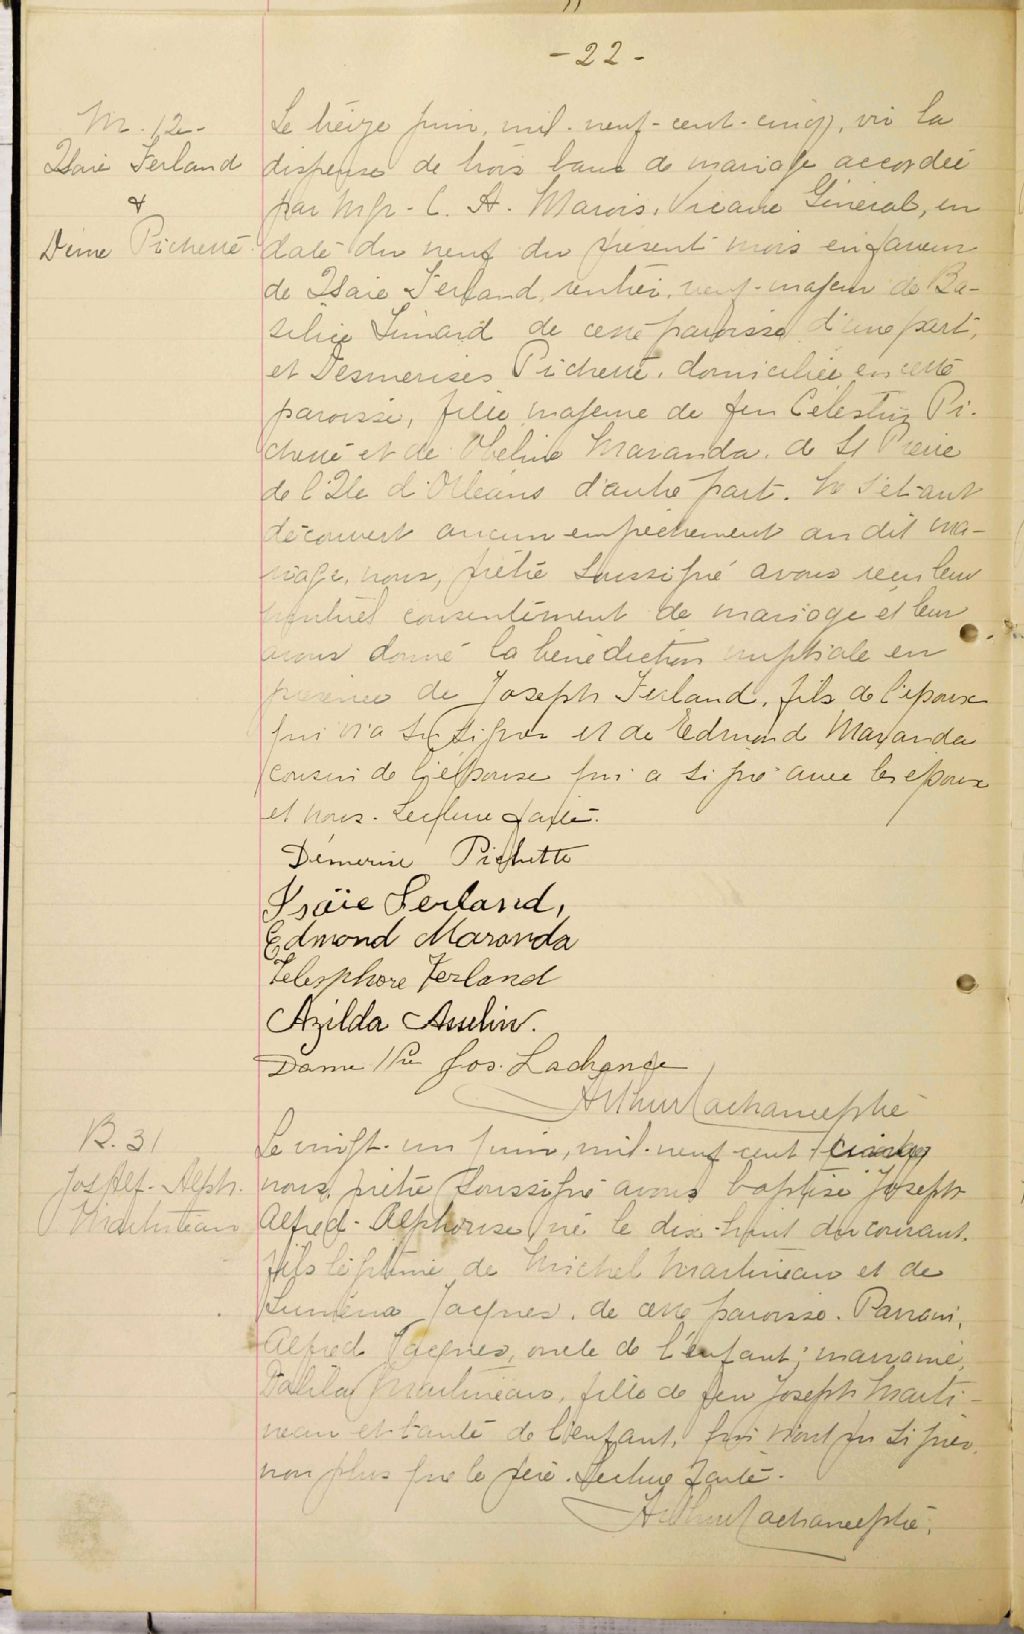 - 22 -
M. 12-
Isaie Ferland
&
Déme Pichette
Le treize juin, mil-neuf-cent-cinq, vu la
dispense de trois bans de mariage accordée
par Mgr - C. A. Marois, Vicaire Général, en
date du neuf du présent mois en faveur
de Isaie Ferland, rentier, veuf-majeur de Ba-
silice Simard de cette paroisse d'une part,
et Desmerises Pichette, domiciliée en cette
paroisse, fille majeure de feu Célestin Pi-
chette et de Obéline Maranda, de St Pierre
de l'Ile d'Orléans d'autre part. Ne s'étant
découvert aucun empêchement au dit ma-
riage, nous, prêtre soussigné avons reçu leur
mutuel consentement de mariage et leur
avons donné la bénédiction nuptiale en
présence de Joseph Ferland, fils de l'époux
qui n'a su signer et de Edmond Maranda
cousin de l'épouse qui a signé avec les époux
et nous. Lecture faite.
Démerise Pichette
Isaïe Ferland,
Edmond Maranda
Telesphore Ferland
Azilda Asselin.
Dame Jos. Lachance
Arthur Lachance ptre
B. 31
Jos Alf. Alph.
Martineau
Le vingt-un juin, mil-neuf-cent cinq
nous, prêtre soussigné avons baptisé Joseph
Alfred-Alphonse, né le dix-huit du courant,
fils légitime de Michel Martineau et de
Luména Jacques, de cette paroisse. Parrain,
Alfred Jacques, oncle de l'enfant; marraine,
Dalila Martineau, fille de feu Joseph Marti-
neau et tante de l'enfant, qui n'ont pu signer,
non plus que le père. Lecture faite.
Arthur Lachance ptre.